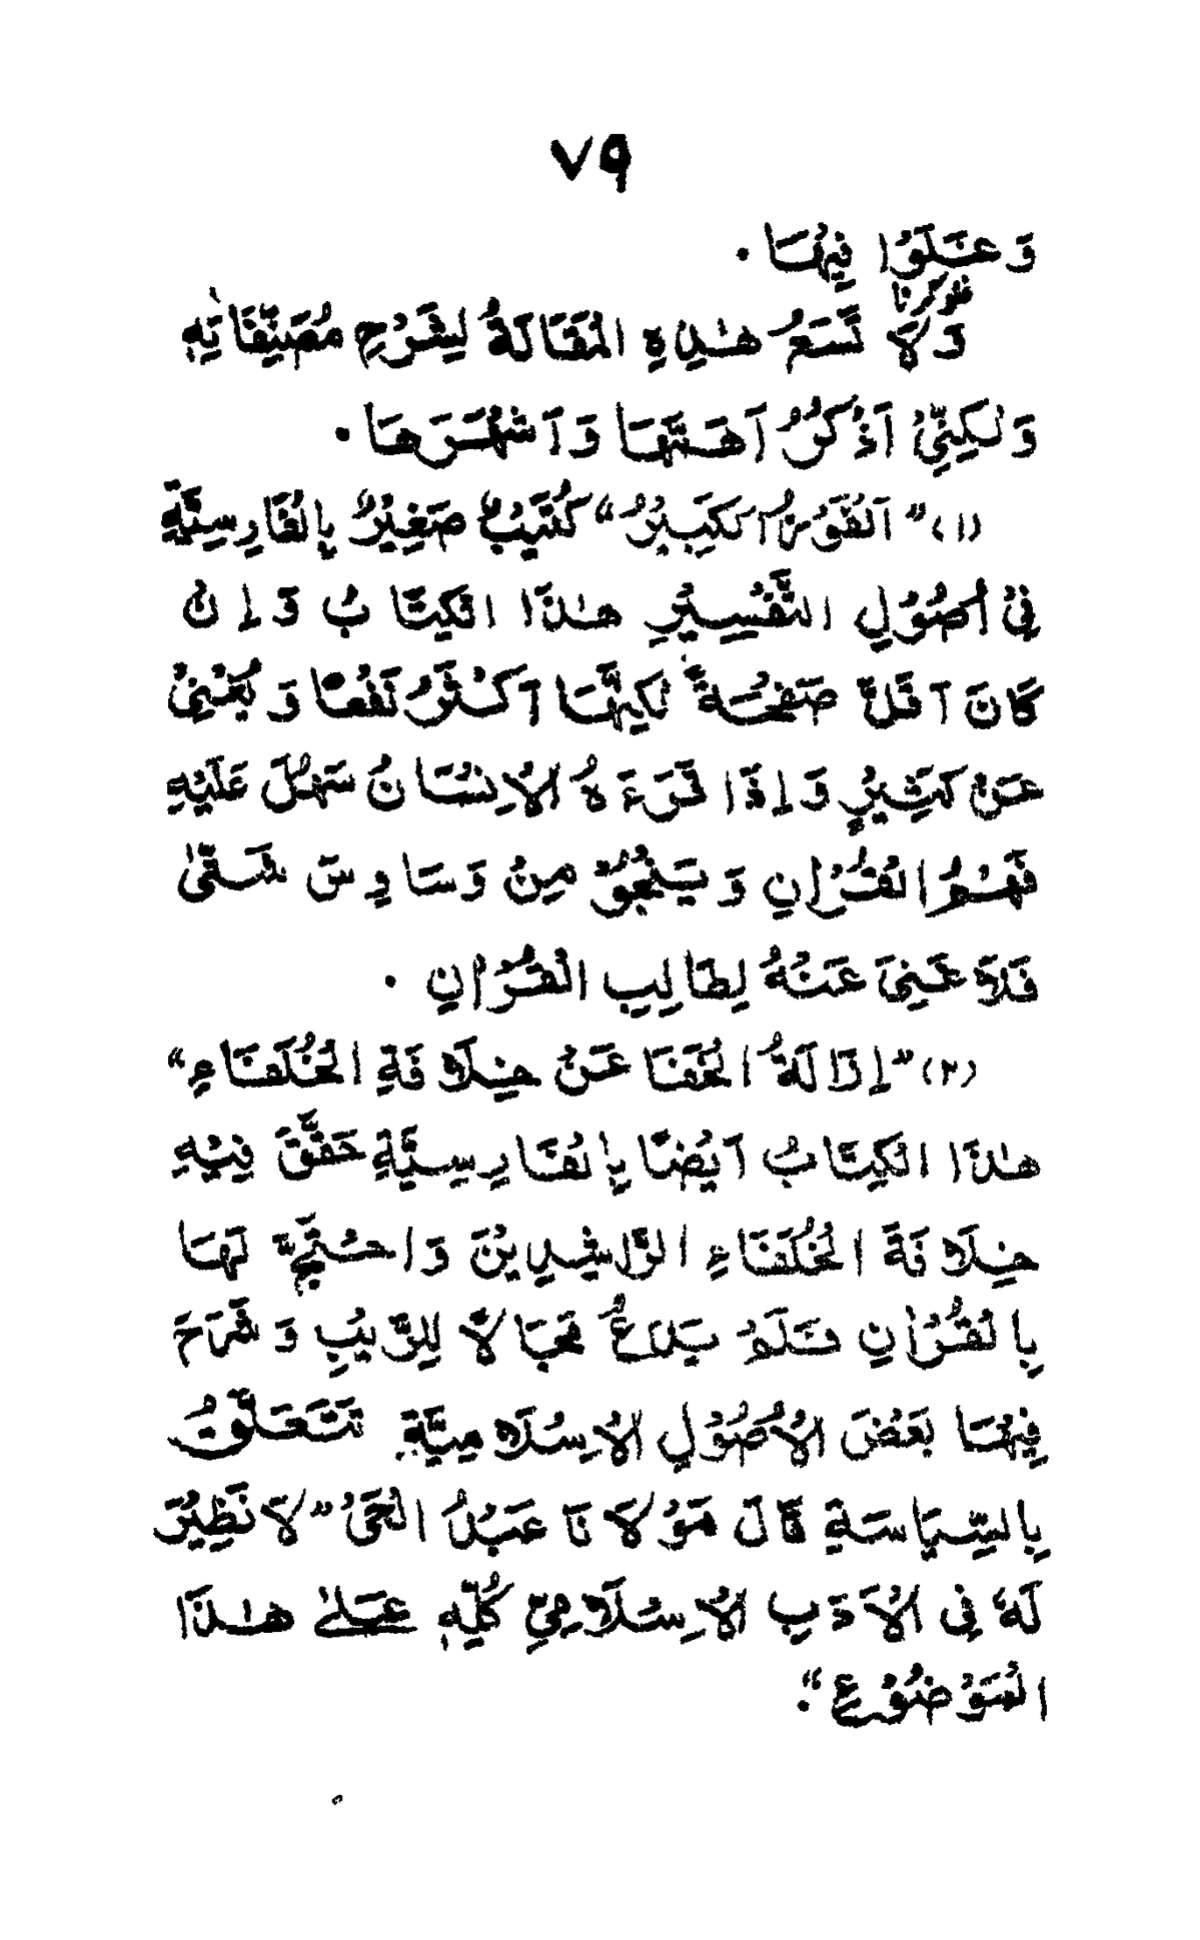 ٧٩
وَغَلَوْا فِيْهَا.
غلو کرنا
وَلَا تَسَعُ هٰذِهِ الْمَقَالَةُ لِشَرْحِ مُصَنَّفَاتِهٖ
وَلٰكِنِّيْ اَذْكُرُ اَهَمَّهَا وَاَشْهَرَهَا.
(١) "اَلْفَوْزُ الْكَبِيْرُ" كُتَيِّبٌ صَغِيْرٌ بِالْفَارِسِيَّةِ
فِيْ اُصُوْلِ التَّفْسِيْرِ هٰذَا الْكِتَابُ وَاِنْ
كَانَ اَقَلَّ صَفْحَةً لٰكِنَّهَا اَكْثَرُ نَفْعًا وَيُغْنِيْ
عَنْ كَثِيْرٍ وَاِذَا قَرَءَهُ الْاِنْسَانُ سَهُلَ عَلَيْهِ
فَهْمُ الْقُرْاٰنِ وَيَنْجُوْ مِنْ وَسَاوِسَ شَتّٰى
فَلَا غِنَى عَنْهُ لِطَالِبِ الْقُرْاٰنِ.
(٢) "اِزَالَةُ الْخَفَا عَنْ خِلَافَةِ الْخُلَفَاءِ"
هٰذَا الْكِتَابُ اَيْضًا بِالْفَارِسِيَّةِ حَقَّقَ فِيْهِ
خِلَافَةَ الْخُلَفَاءِ الرَّاشِدِيْنَ وَاحْتَجَّ لَهَا
بِالْقُرْاٰنِ فَلَمْ يَدَعْ مَجَالًا لِلرَّيْبِ وَشَرَحَ
فِيْهَا بَعْضَ الْاُصُوْلِ الْاِسْلَامِيَّةِ تَتَعَلَّقُ
بِالسِّيَاسَةِ قَالَ مَوْلَانَا عَبْدُ الْحَيْ "لَا نَظِيْرَ
لَهٗ فِي الْاَدَبِ الْاِسْلَامِيِّ كُلِّهٖ عَلٰى هٰذَا
الْمَوْضُوْعِ".